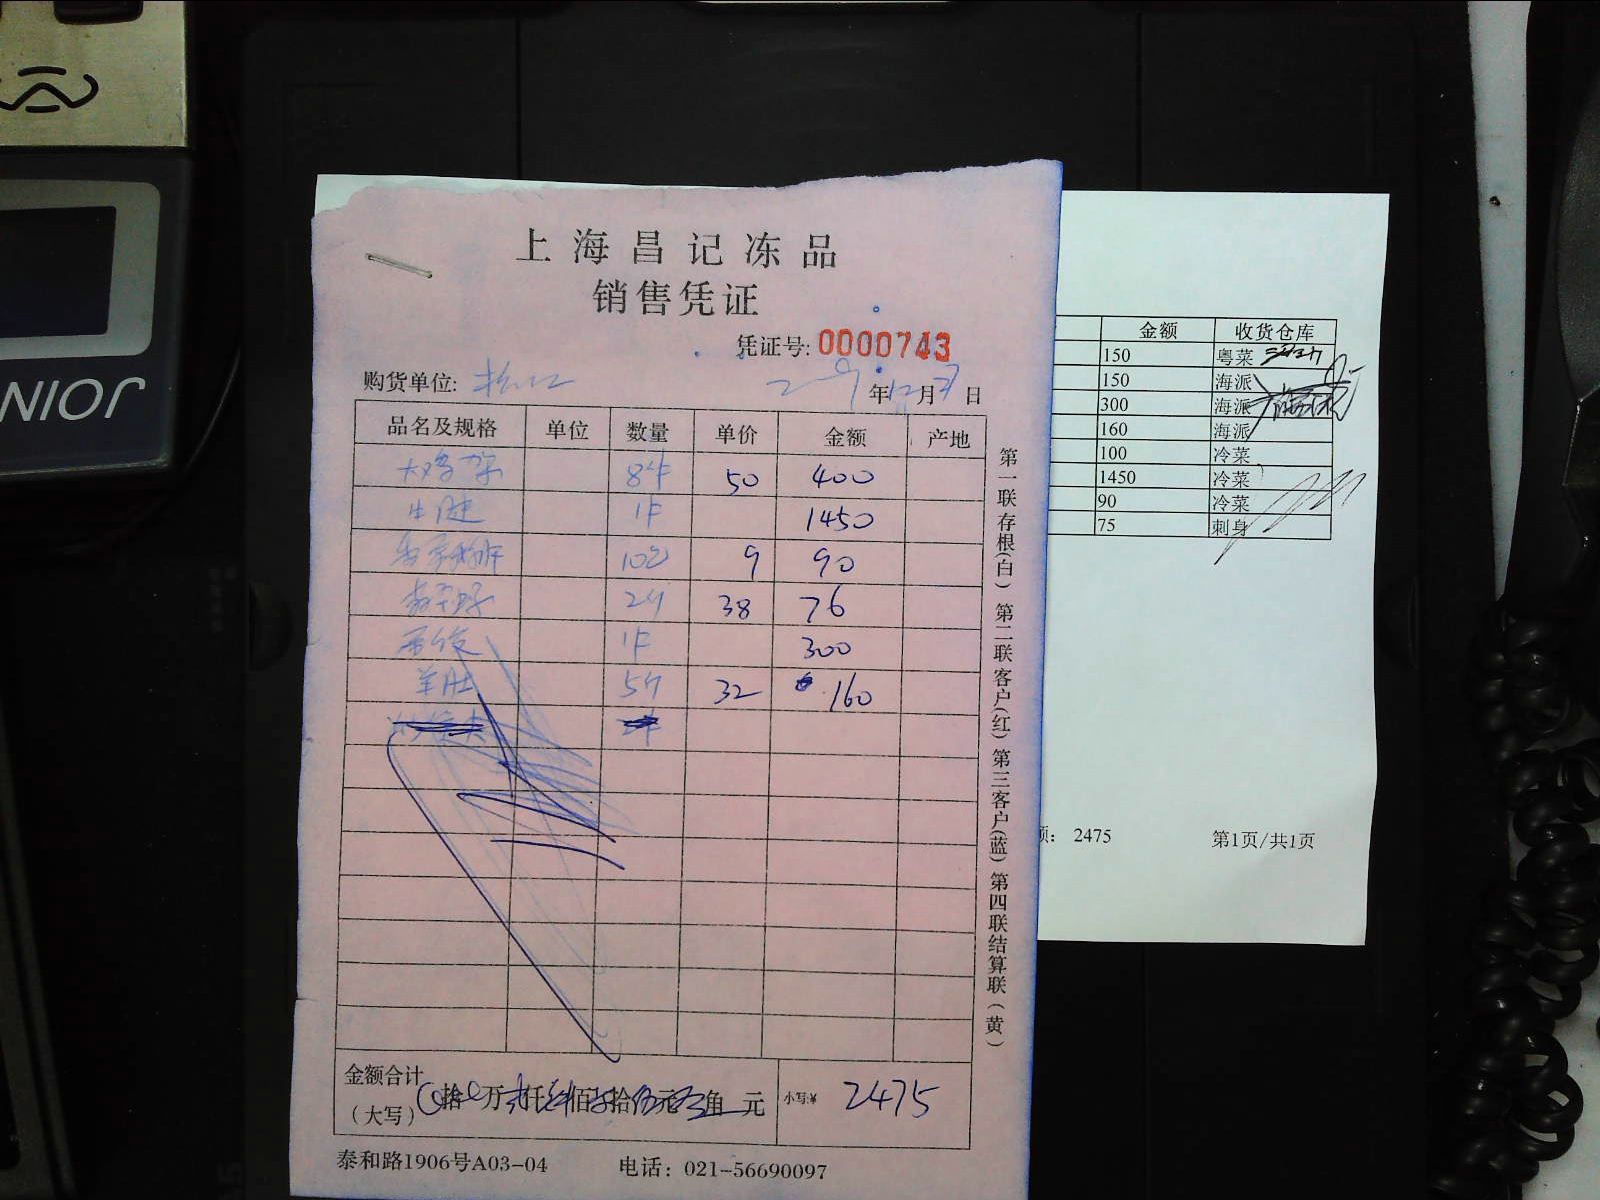 JOIN
上海昌记冻品
销售凭证
凭证号: 0000743
购货单位: 松江 年12月 日
品名及规格 单位 数量 单价 金额 产地
大鸡架 8件 50 400
牛腱 1件 1450
10包 9 90
2个 38 76
西冷 1件 300
羊肚 5个 32 160
金额合计
(大写) 拾 万 仟 佰 拾 元 角 元 小写:¥ 2475
泰和路1906号A03-04 电话: 021-56690097
第一联存根(白) 第二联客户(红) 第三客户(蓝) 第四联结算联(黄)
金额 收货仓库
150 粤菜
150 海派
300 海派
160 海派
100 冷菜
1450 冷菜
90 冷菜
75 刺身
额: 2475 第1页/共1页